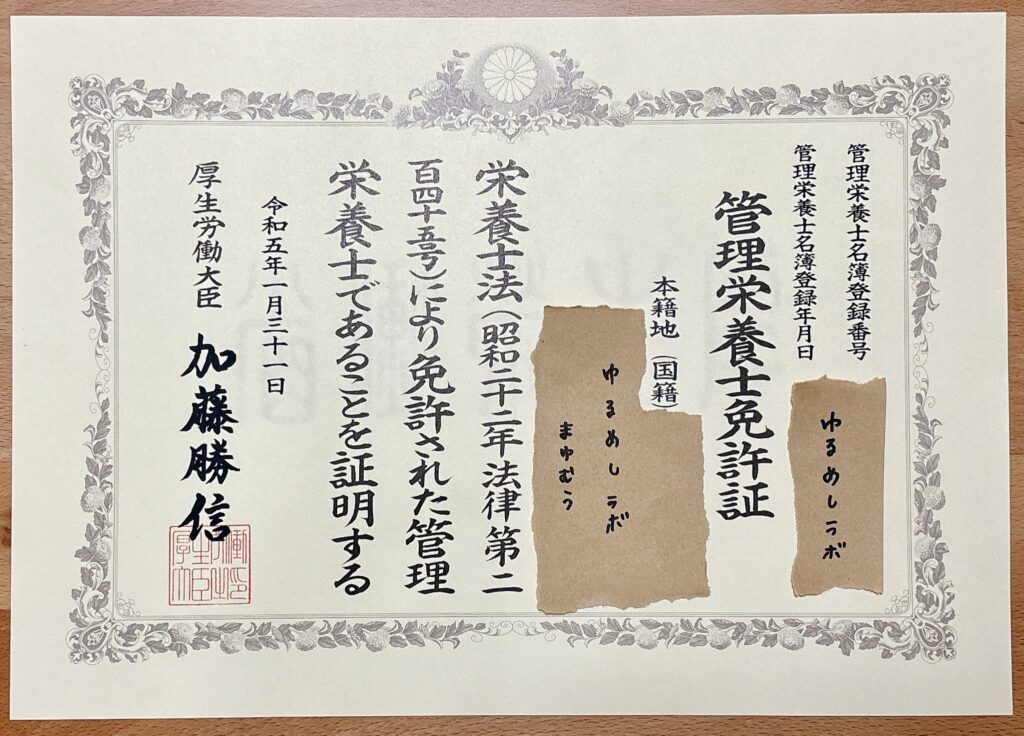 管理栄養士名簿登録番号
管理栄養士名簿登録年月日
ゆるめしラボ
管理栄養士免許証
本籍地（国籍）
ゆるめしラボ
まゆむう
栄養士法（昭和二十二年法律第二
百四十五号）により免許された管理
栄養士であることを証明する
令和五年一月三十一日
厚生労働大臣 加藤勝信